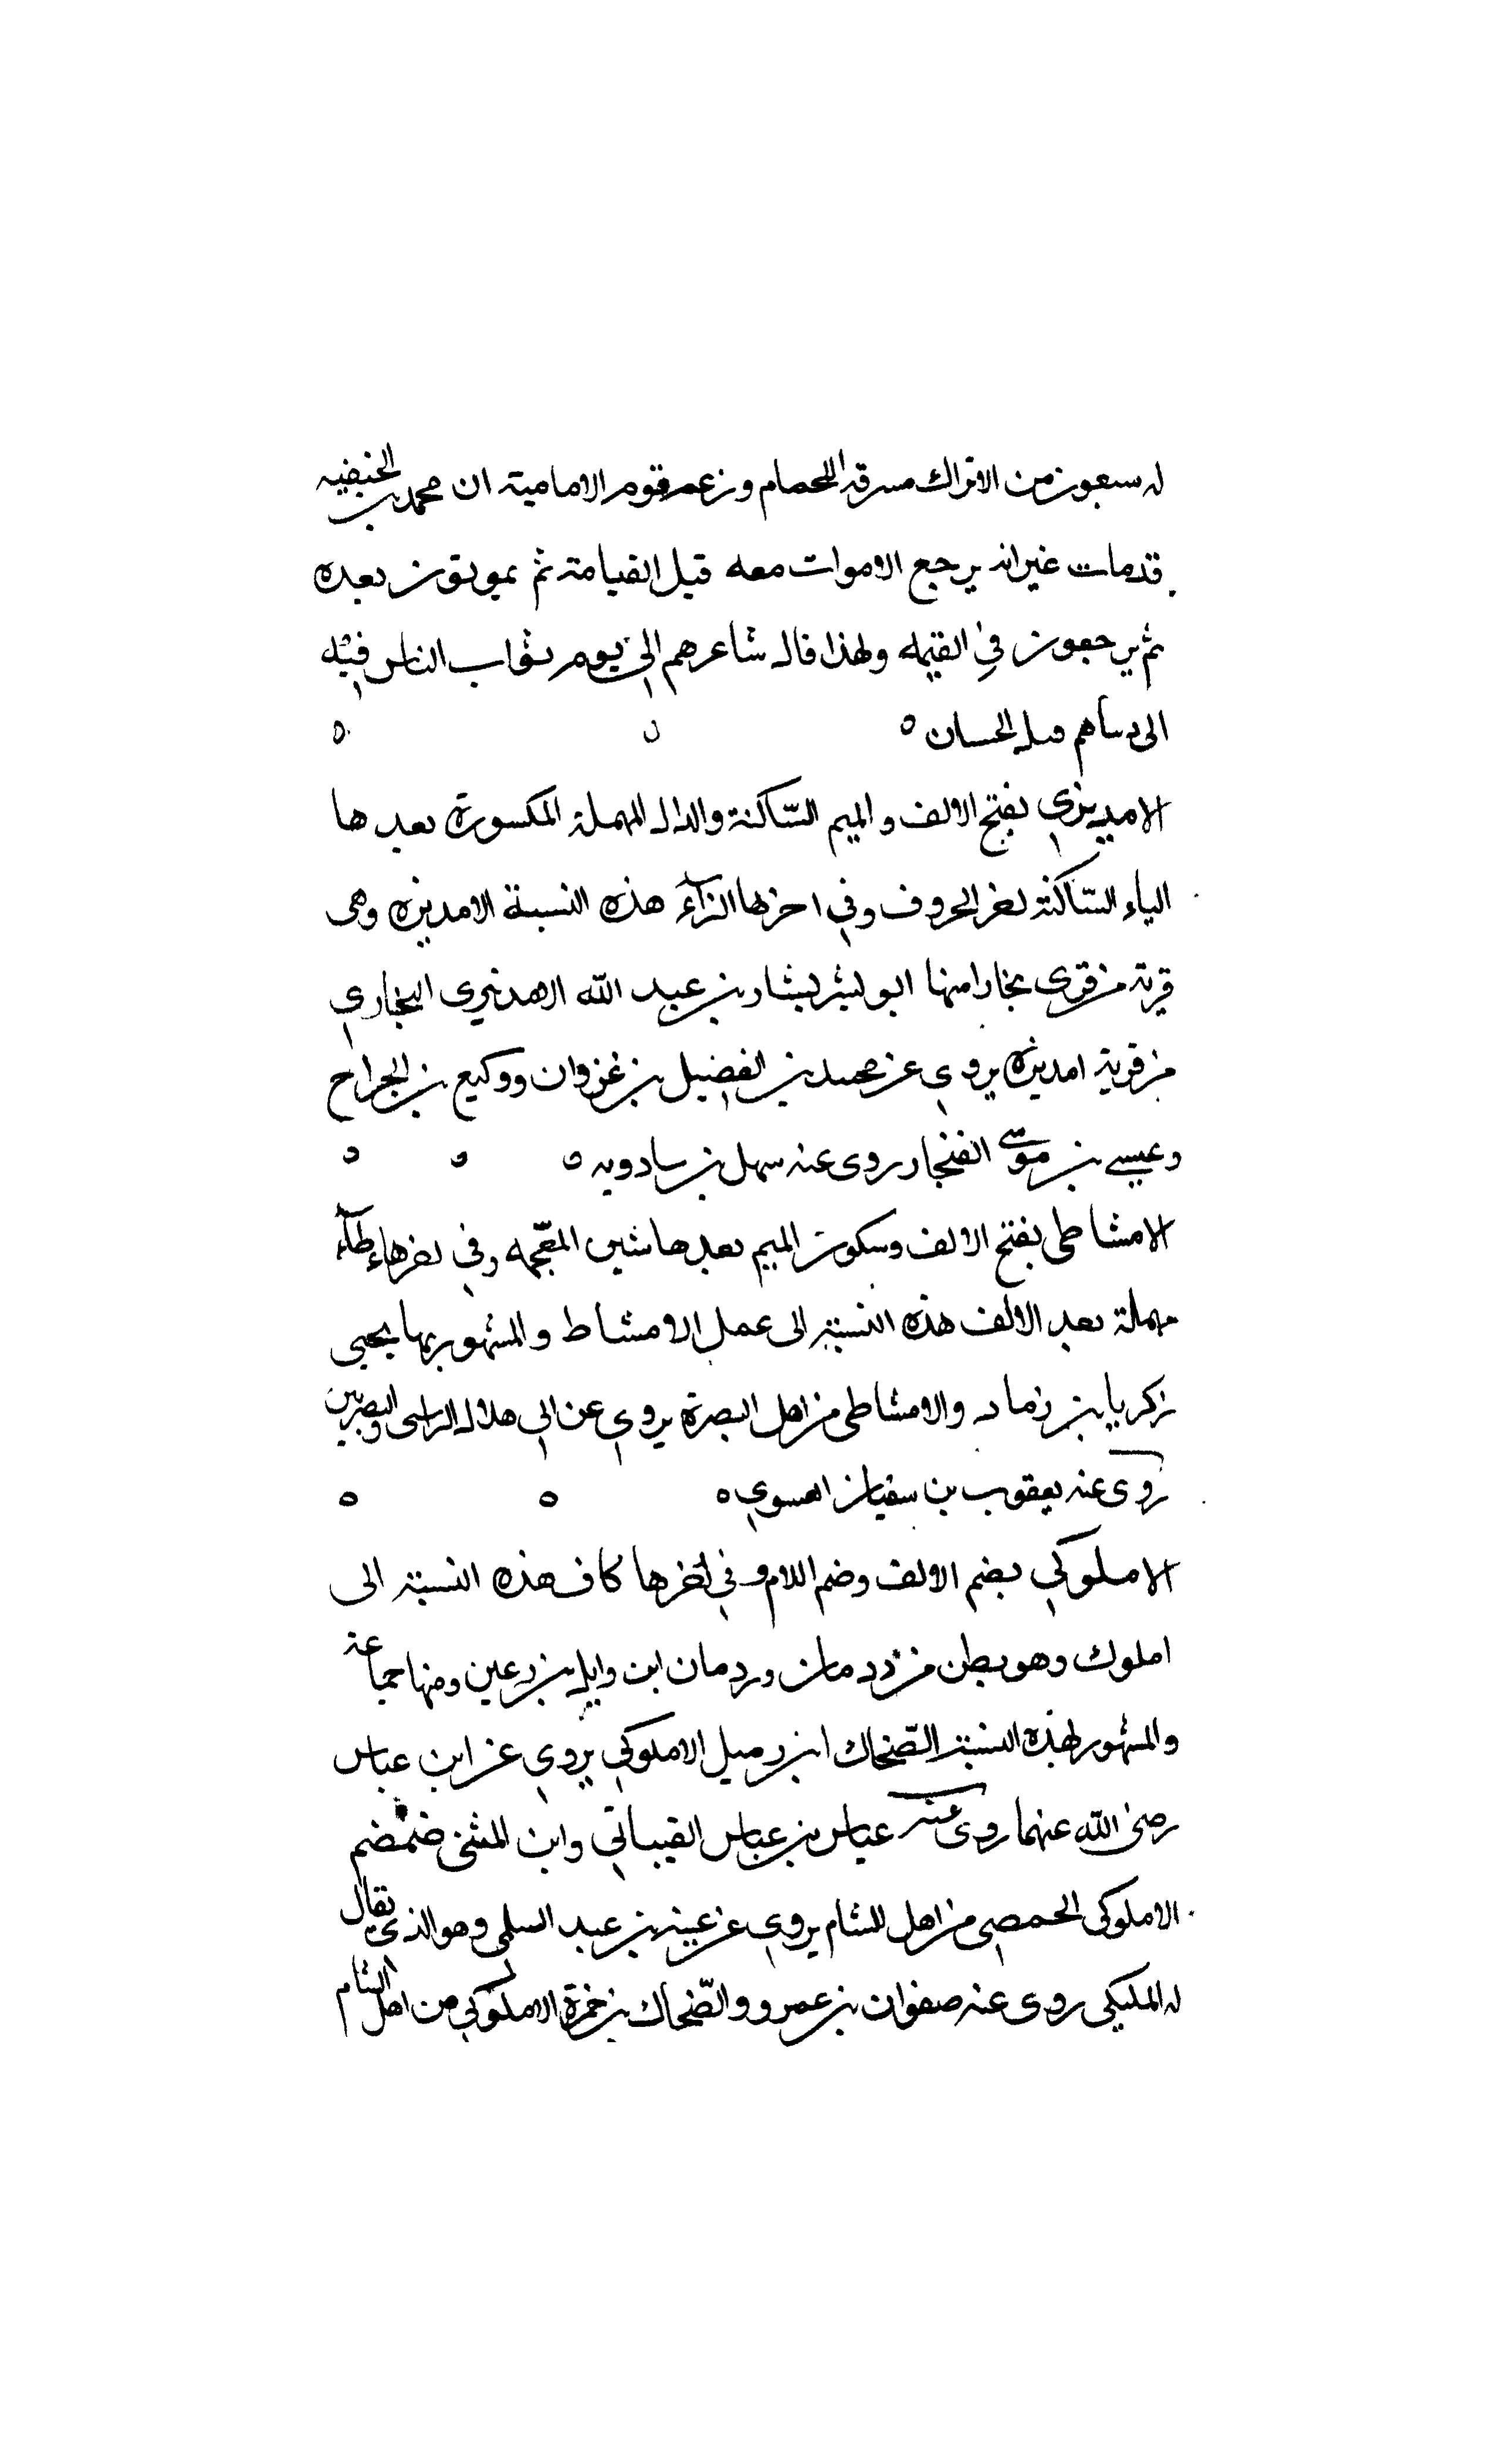 له سبعون من الاتراك مسرقة اللحصام وزعم قوم الامامية ان محمد بن الحنيفيه
قد مات غير انه يرجع الاموات معه قبل القيامة ثم يموتون بعده
ثم يرجعون في القيمه ولهذا قال شاعرهم الى يوم يثواب الناس فيه
الى دنياهم قبل الحساب ه
الامديزي بفتح الالف والميم الساكنة والدال المهملة المكسورة بعدها
الياء الساكنة اخر الحروف وفي اخرها الزآء هذه النسبة الامديزه وهي
قرية من قرى بخارا منها ابو بشر بشار بن عبد الله الامديزي البخاري
من قرية امديزه يروي عن محمد بن الفضيل بن غزوان ووكيع بن الجراح
وعيسى بن موسى الغنجار روى عنه سهل بن سادويه ه
الامشاطي بفتح الالف وسكون الميم بعدها شين المعجمه وفي اخرها طآء
مهملة بعد الالف هذه النسبة الى عمل الامشاط والمشهور بها يحيى
زكريا بن زماد والامشاطي من اهل البصرة يروي عن ابي هلال الراسي والبصريين
روى عنه يعقوب بن سفيان الفسوي ه
الاملوكي بضم الالف وضم اللام وفي اخرها كاف هذه النسبة الى
املوك وهو بطن من ردمان وردمان ابن وايل بن رعين ومنها جماعة
والمشهور بهذه النسبة الضحاك ابن زميل الاملوكي يروي عن ابن عباس
رضى الله عنهما روى عنه عياش بن عباس القتباني وابن المثنى ضمضم
الاملوكي الحمصي من اهل الشام يروي عن عتبة بن عبد السلمي وهو الذي يقال
له المليكي روى عنه صفوان بن عمرو والضحاك بن حمزة الاملوكي من اهل الشام